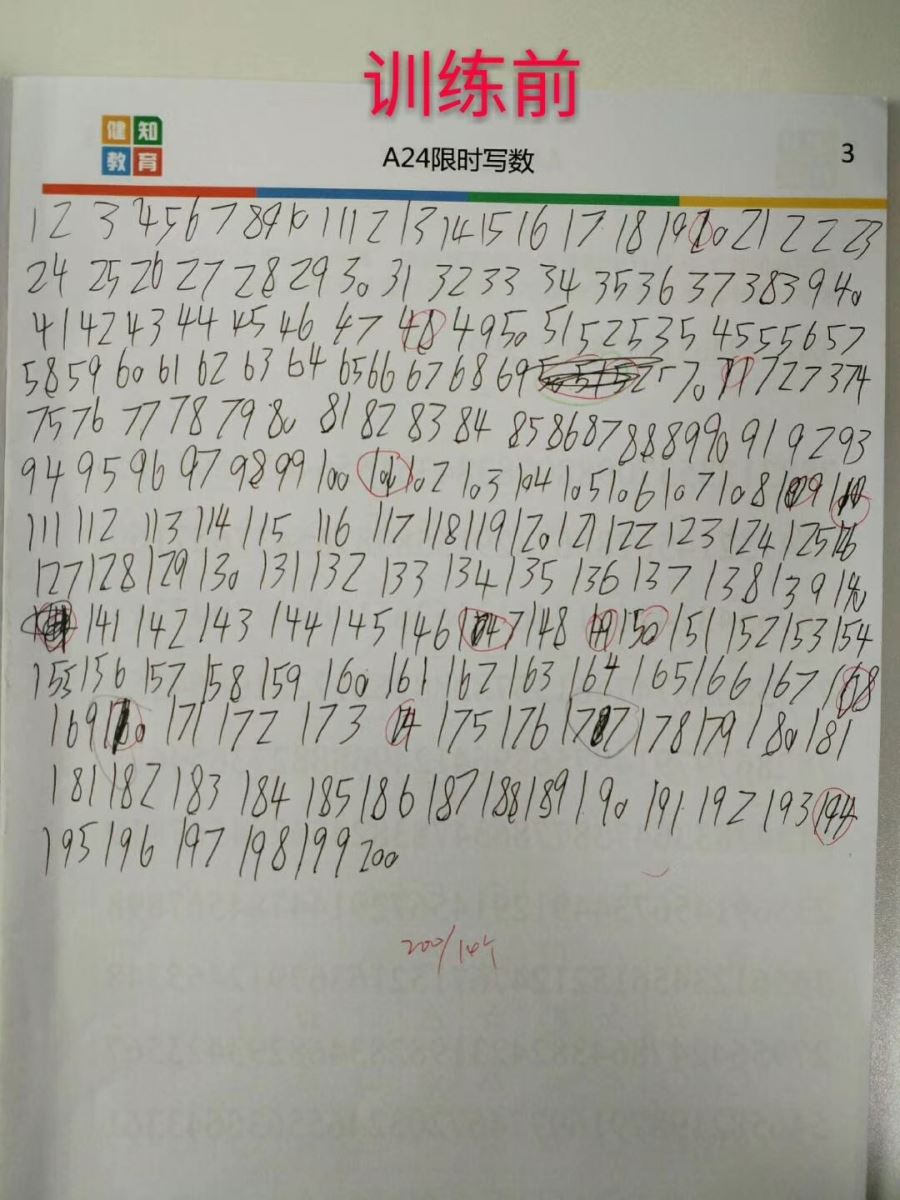 训练前
健知
教育
A24限时写数
3
1 2 3 4 5 6 7 8 9 10 11 12 13 14 15 16 17 18 19 20 21 22 23
24 25 26 27 28 29 30 31 32 33 34 35 36 37 38 39 40
41 42 43 44 45 46 47 48 49 50 51 52 53 54 55 56 57
58 59 60 61 62 63 64 65 66 67 68 69 70 71 72 73 74
75 76 77 78 79 80 81 82 83 84 85 86 87 88 89 90 91 92 93
94 95 96 97 98 99 100 101 102 103 104 105 106 107 108 109 110
111 112 113 114 115 116 117 118 119 120 121 122 123 124 125 126
127 128 129 130 131 132 133 134 135 136 137 138 139 140
141 142 143 144 145 146 147 148 149 150 151 152 153 154
155 156 157 158 159 160 161 162 163 164 165 166 167 168
169 170 171 172 173 174 175 176 177 178 179 180 181
181 182 183 184 185 186 187 188 189 190 191 192 193 194
195 196 197 198 199 200
200/14个